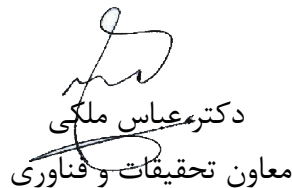 دکتر عباس ملکی
معاون تحقیقات و فناوری